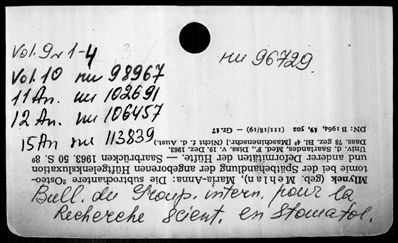 Vol. 9 № 1-4
nu 96729
Vol. 10 nu 98967
11 An. nu 102691
12 An. nu 106457
15 An nu 113839
Bull. du Group. intern. pour la
Recherche Scient. en Stomatol.
Mlynek (geb. Mehlan), Maria-Anna: Die subtrochantere Osteo-
tomie bei der Spätbehandlung der angeborenen Hüftgelenksluxation
und anderer Deformitäten der Hüfte. — Saarbrücken 1963. 50 S. 8°
Univ. d. Saarlandes, Med. F., Diss. v. 19. Dez. 1963.
Dass. 18 gez. Bl. 4° [Maschinenschr.] (Nicht f. d. Aust.).
DN: B 1964, 19, 502 (111/18/19) – Gr 17